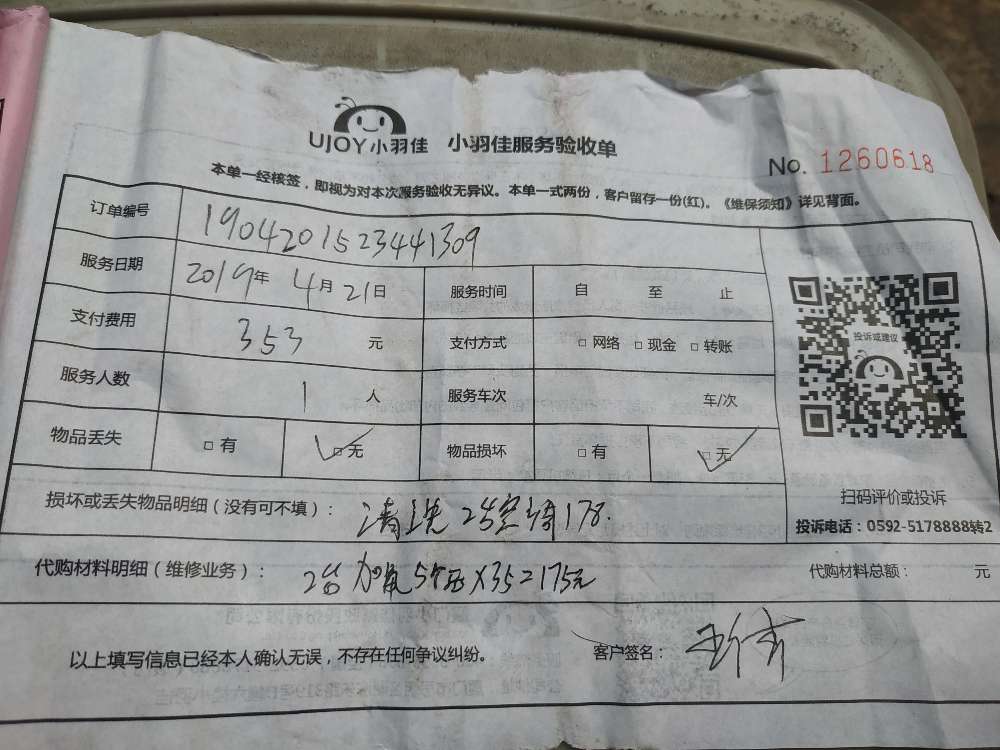 UJOY小羽佳 小羽佳服务验收单
No. 1260618
本单一经核签，即视为对本次服务验收无异议。本单一式两份，客户留存一份(红)。《维保须知》详见背面。
订单编号 1904201523441309
服务日期 2019年 4月 21日 服务时间 自 至 止
支付费用 353 元 支付方式 □ 网络 □ 现金 □ 转账
投诉或建议
服务人数 1 人 服务车次 车/次
物品丢失 □ 有 □ 无 物品损坏 □ 有 □ 无
扫码评价或投诉
投诉电话：0592-5178888转2
损坏或丢失物品明细（没有可不填）： 清洗2台空调178
代购材料明细（维修业务）： 2台 加氟5个压×35=175元 代购材料总额： 元
以上填写信息已经本人确认无误，不存在任何争议纠纷。 客户签名：